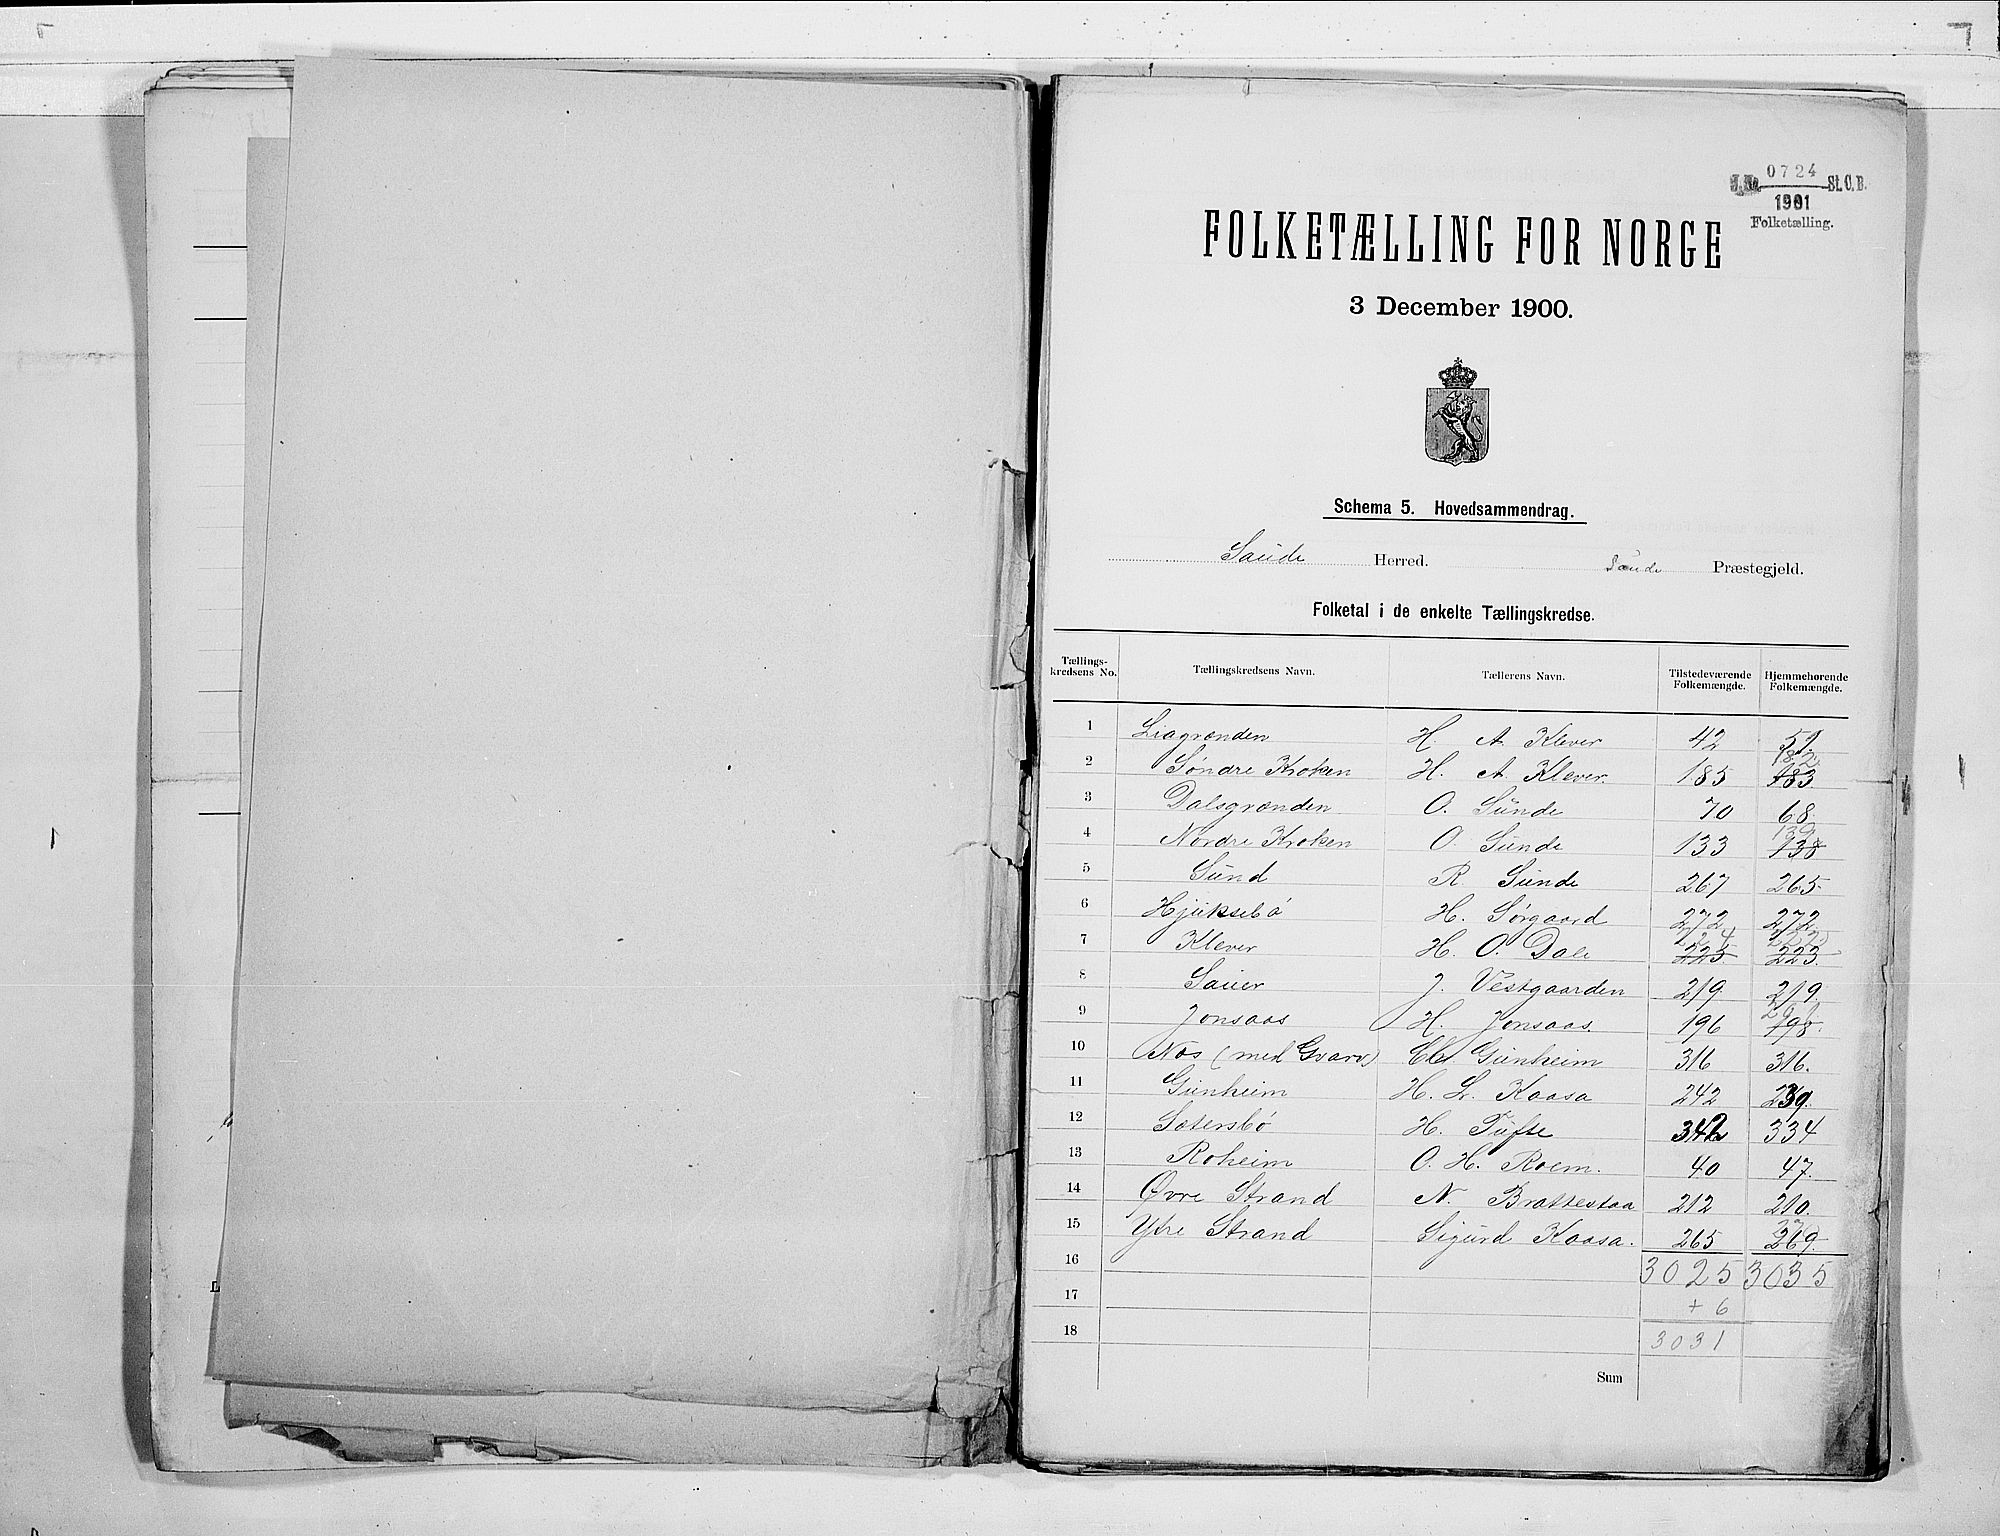 0724
J.No. St.C.B.
1901
Folketælling.
FOLKETÆLLING FOR NORGE
3 December 1900.
Schema 5. Hovedsammendrag.
Saude Herred. Saude Præstegjeld.
Folketal i de enkelte Tællingskredse.
Tællings-kredsens No. Tællingskredsens Navn. Tællerens Navn. Tilstedeværende Folkemængde. Hjemmehørende Folkemængde.
1 Liagrænden H. A. Klever 42 51.
182
2 Søndre Kroken H. A. Klever. 185 183
3 Dalsgrænden O. Sunde 70 68.
139
4 Nordre Kroken O. Sunde 133 138
5 Sund R. Sunde 267 265.
6 Hjuksebø H. Sørgaard 272 272.
224 222
7 Klever H. O. Dale 225 223.
8 Sauer J. Vestgaarden 219 219.
9 Jonsaas H. Jonsaas. 196 198.
10 Nos (med Gvarv) Gunheim 316 316.
11 Gunheim H. L. Kaasa 242 239.
12 Sætersbø H. Tufte 342 334
13 Roheim O. H. Roem. 40 47.
14 Øvre Strand N. Brattestaa 212 210.
15 Ytre Strand Sigurd Kaasa. 265 269.
16 3025 3035
17 + 6
18 3031
Sum